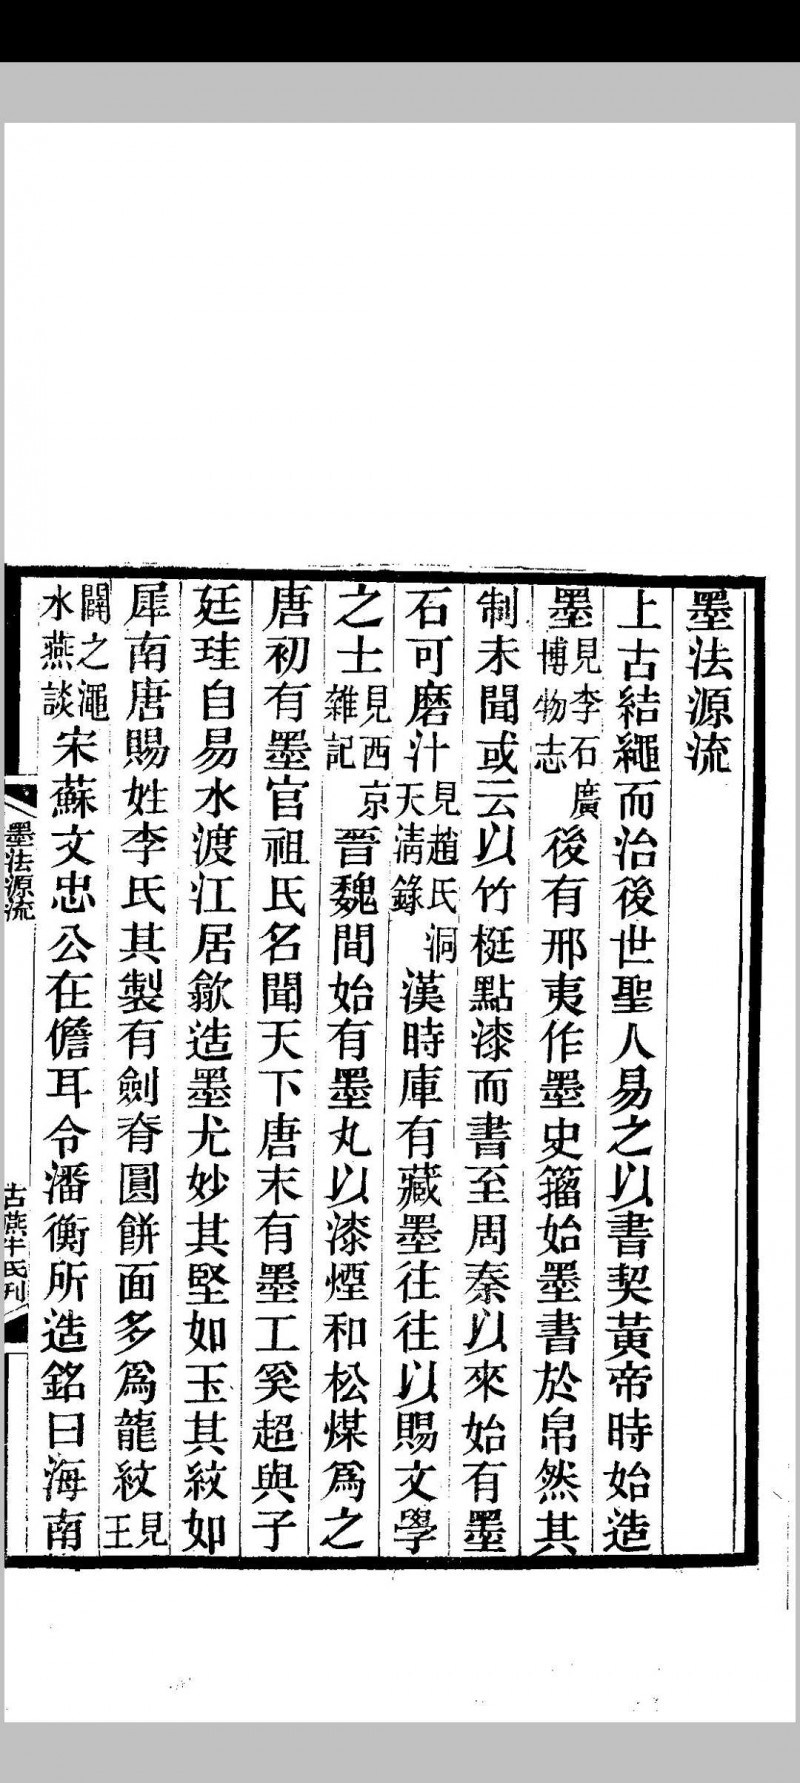 墨法源流
上古結繩而治後世聖人易之以書契黃帝時始造
墨見李石廣博物志後有邢夷作墨史籀始墨書於帛然其
制未聞或云以竹梃點漆而書至周秦以來始有墨
石可磨汁見趙氏洞天清錄漢時庫有藏墨往往以賜文學
之士見西京雜記晉魏間始有墨丸以漆煙和松煤爲之
唐初有墨官祖氏名聞天下唐末有墨工奚超與子
廷珪自易水渡江居歙造墨尤妙其堅如玉其紋如
犀南唐賜姓李氏其製有劍脊圓餅面多爲龍紋見王
闢之澠水燕談宋蘇文忠公在儋耳令潘衡所造銘曰海南
墨法源流
古燕牛氏刊